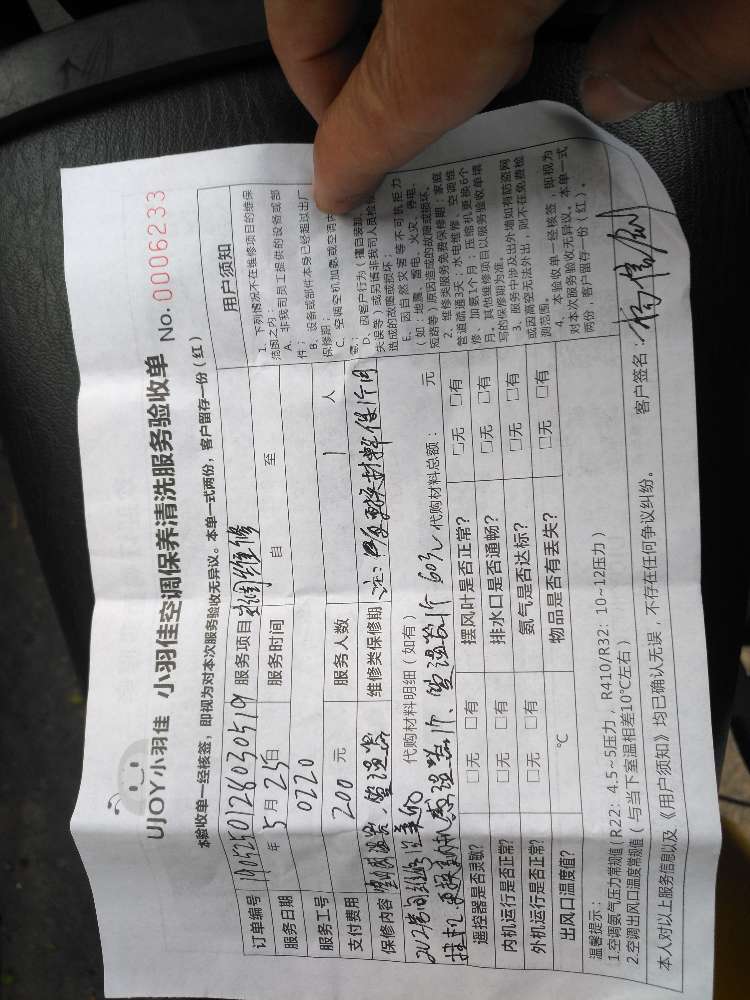 UJOY小羽佳 小羽佳空调保养清洗服务验收单 No. 0006233
本验收单一经核签，即视为对本次服务验收无异议。本单一式两份，客户留存一份（红）
订单编号 190525012803051 服务项目 空调维修
服务日期 年 5月25日 服务时间 自 至
服务工号 0220 服务人数 1 人
支付费用 200 元 维修类保修期 注：
保修内容
代购材料明细（如有） 60元 代购材料总额： 元
遥控器是否灵敏？ □无 □有 摆风叶是否正常？ □无 □有
内机运行是否正常？ □无 □有 排水口是否通畅？ □无 □有
外机运行是否正常？ □无 □有 氨气是否达标？ □无 □有
出风口温度值？ ℃ 物品是否有丢失？ □无 □有
用户须知
1、下列情况不在维修项目的维保
范围之内：
A、非我司员工提供的设备或部
件；
B、设备或部件本身已经超过出厂
保修期；
C、空调空机加氨或空调内
D、因客户行为（擅自装卸、
失误等）或另请非我司人员检修
造成的故障或损坏；
E、因自然灾害等不可抗拒力
（如：地震、雷电、火灾、停电、
短路等）原因造成的故障或损坏。
2、维修类服务免费保修期：家庭
管道疏通3天；水电维修、空调维
修、加氨1个月；压缩机更换6个
月。其他维修项目以服务验收单填
写的保修期为准。
3、服务中涉及出外墙如有防盗网
或因高空无法外出，则不在免费检
测范围。
4、本验收单一经核签，即视为
对本次服务验收无异议。本单一式
两份：客户留存一份（红）。
温馨提示：
1.空调氨气压力常规值（R22：4.5~5压力，R410/R32：10~12压力）
2.空调出风口温度常规值（与当下室温相差10℃左右）
本人对以上服务信息以及《用户须知》均已确认无误，不存在任何争议纠纷。 客户签名：